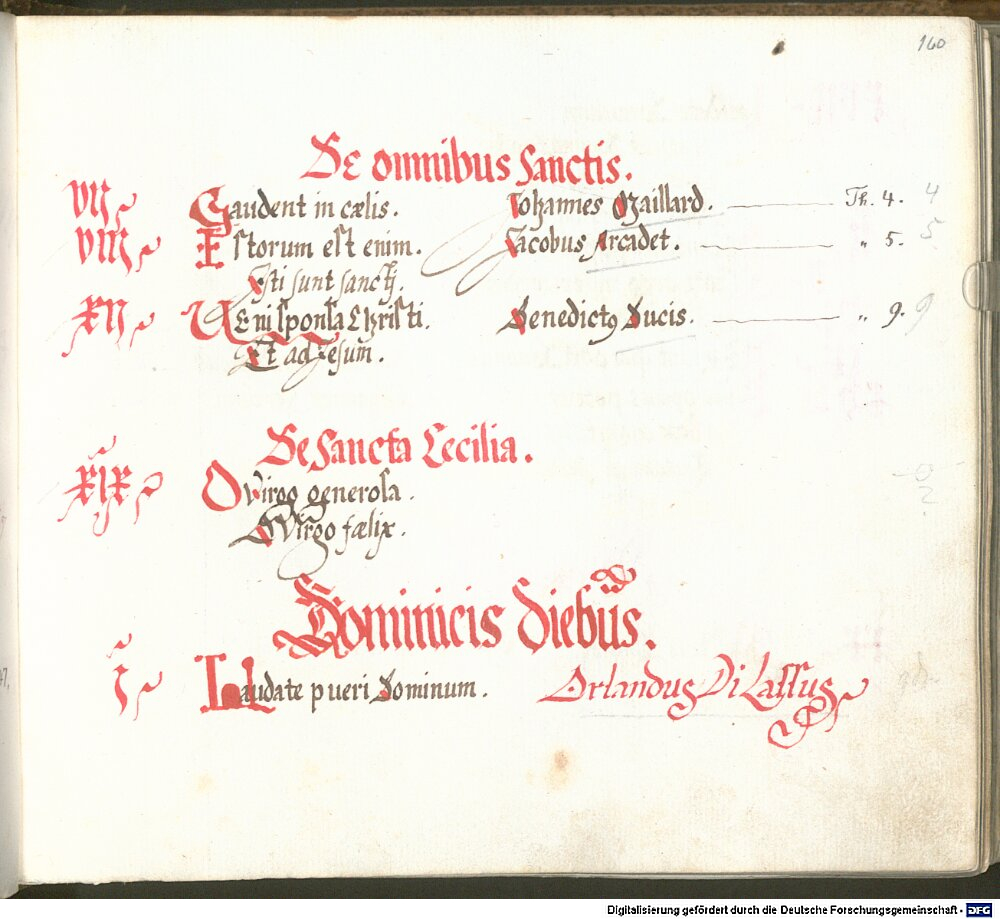 160
De omnibus Sanctis.
VII Gaudent in cælis. Johannes Maillard. Th. 4. 4
VIII Istorum est enim. Jacobus Arcadet. " 5. 5
Isti sunt sanctj.
XII Veni sponsa Christi. Benedictꝰ Ducis. " 9. 9
Et ad Jesum.
De Sancta Cecilia.
XIX O virgo generosa.
O Virgo fælix.
Dominicis Diebus.
I Laudate pueri Dominum. Orlandus Di Lassus
Digitalisierung gefördert durch die Deutsche Forschungsgemeinschaft - DFG